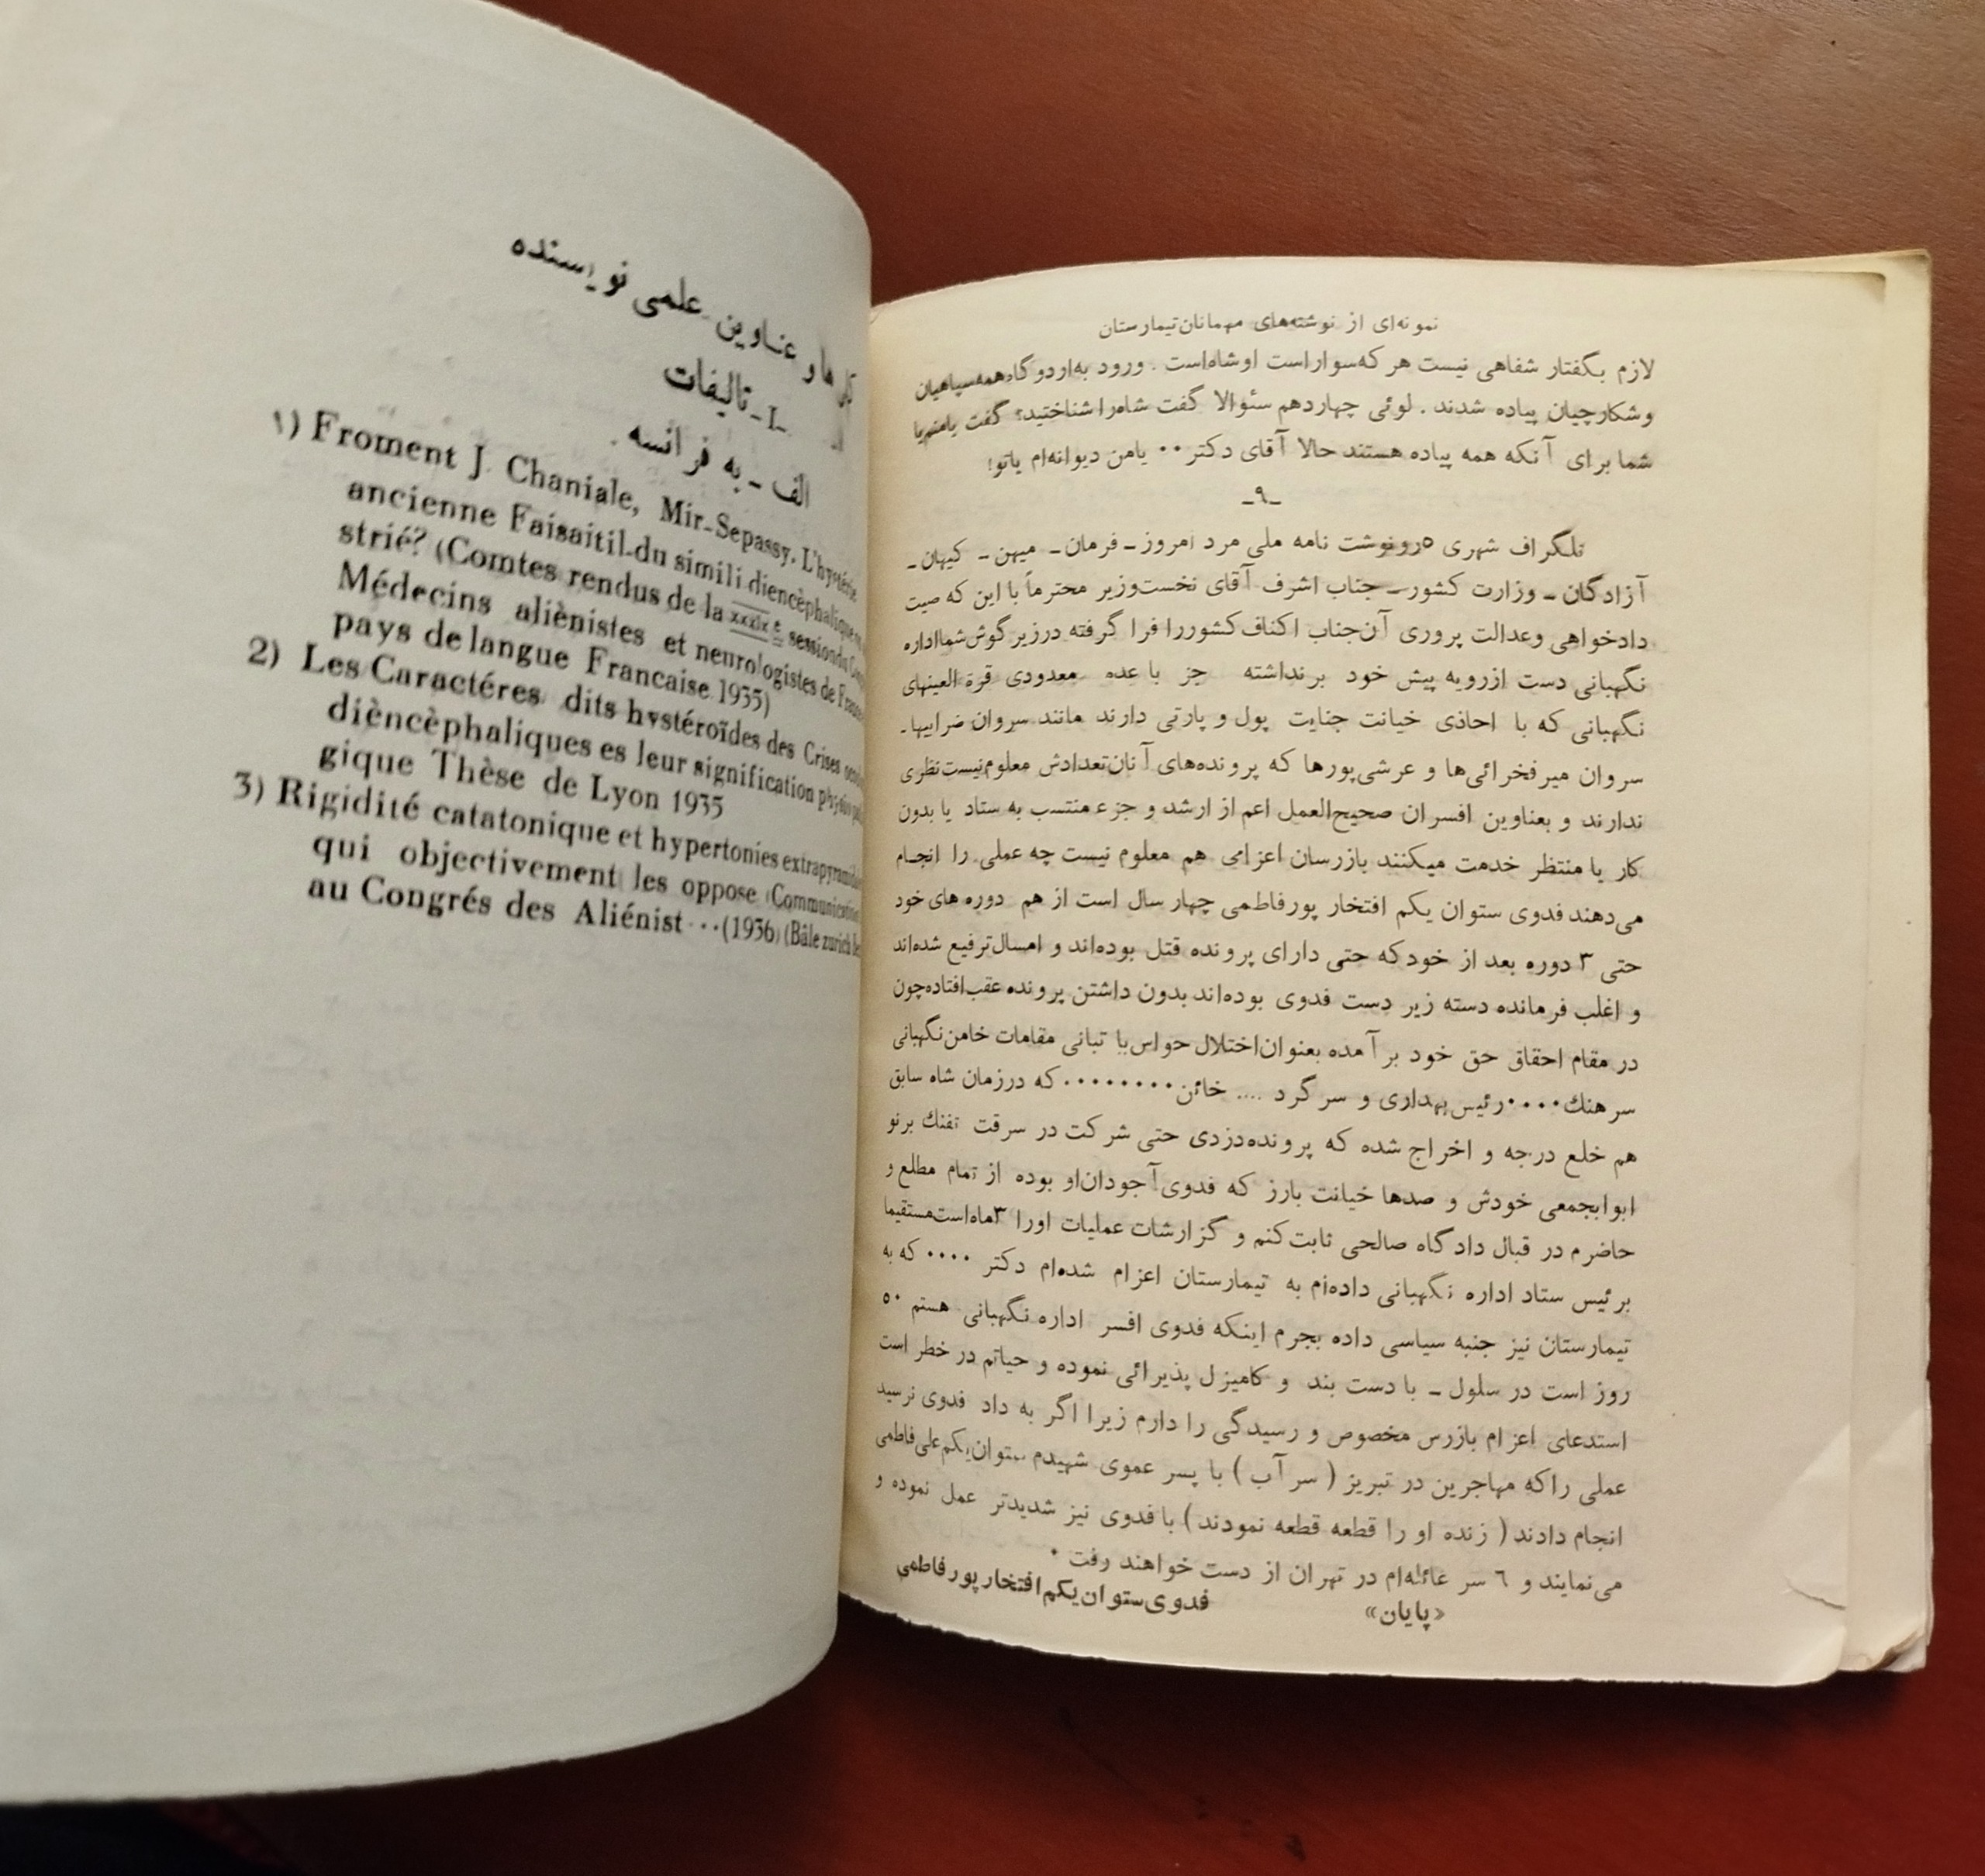 نمونه‌ای از نوشته‌های مهمانان تیمارستان
لازم بگفتار شفاهی نیست هر که سوار است او شاه است . ورود به اردوگاه همه سپاهیان
و شکارچیان پیاده شدند . لوئی چهاردهم سئوالا گفت شاه را شناختید؟ گفت یا منم یا
شما برای آنکه همه پیاده هستند حالا آقای دکتر ۰۰ یا من دیوانه‌ام یا تو!
ـ۹ـ
تلگراف شهری ۵ رونوشت نامه ملی مرد امروز ـ فرمان ـ میهن ـ کیهان ـ
آزادگان ـ وزارت کشور ـ جناب اشرف آقای نخست‌وزیر محترماً با این که صیت
دادخواهی وعدالت پروری آن‌جناب اکناف کشور را فرا گرفته در زیر گوش شما اداره
نگهبانی دست از رویه پیش خود برنداشته جز با عده معدودی قرة العینهای
نگهبانی که با اخاذی خیانت جنایت پول و پارتی دارند مانند سروان ضرابیها ـ
سروان میرفخرائی‌ها و عرشی‌پورها که پرونده‌های آنان تعدادش معلوم نیست نظری
ندارند و بعناوین افسران صحیح‌العمل اعم از ارشد و جزء منتسب به ستاد یا بدون
کار یا منتظر خدمت میکنند بازرسان اعزامی هم معلوم نیست چه عملی را انجام
می‌دهند فدوی ستوان یکم افتخار پورفاطمی چهار سال است از هم دوره های خود
حتی ۳ دوره بعد از خود که حتی دارای پرونده قتل بوده‌اند و امسال ترفیع شده‌اند
و اغلب فرمانده دسته زیر دست فدوی بوده‌اند بدون داشتن پرونده عقب‌افتاده چون
در مقام احقاق حق خود برآمده بعنوان اختلال حواس با تبانی مقامات خامن نگهبانی
سرهنك ۰۰۰۰ رئیس بهداری و سرگرد .... خائن ۰۰۰۰۰۰۰۰۰ که در زمان شاه سابق
هم خلع درجه و اخراج شده که پرونده دزدی حتی شرکت در سرقت تفنك برنو
ابوابجمعی خودش و صدها خیانت بارز که فدوی آجودان او بوده از تمام مطلع و
حاضرم در قبال دادگاه صالحی ثابت کنم و گزارشات عملیات او را ۳ ماه است مستقیما
برئیس ستاد اداره نگهبانی داده‌ام به تیمارستان اعزام شده‌ام دکتر ۰۰۰۰ که به
تیمارستان نیز جنبه سیاسی داده بجرم اینکه فدوی افسر اداره نگهبانی هستم ۵۰
روز است در سلول ـ با دست بند و کامیزل پذیرائی نموده و حیاتم در خطر است
استدعای اعزام بازرس مخصوص و رسیدگی را دارم زیرا اگر به داد فدوی نرسید
عملی را که مهاجرین در تبریز ( سرآب ) با پسر عموی شهیدم ستوان یکم علی فاطمی
انجام دادند ( زنده او را قطعه قطعه نمودند ) با فدوی نیز شدیدتر عمل نموده و
می‌نمایند و ٦ سر عائله‌ام در تهران از دست خواهند رفت ۰
فدوی ستوان یکم افتخار پورفاطمی
«پایان»
و عناوین علمی نویسنده
I ـ تالیفات
الف ـ به فرانسه .
۱) Froment J. Chaniale, Mir-Sepassy. L'hystérie
ancienne Faisaitil-du simili diencèphalique
strié? (Comtes rendus de la xxxix e session du
Médecins aliènistes et neurologistes de France
pays de langue Francaise 1935)
2) Les Caractéres dits hystéroïdes des Crises
dièncèphaliques es leur signification
gique Thèse de Lyon 1935
3) Rigidité catatonique et hypertonies
qui objectivement les oppose (Communication
au Congrés des Aliénist ···(1936) (Bâle zurich